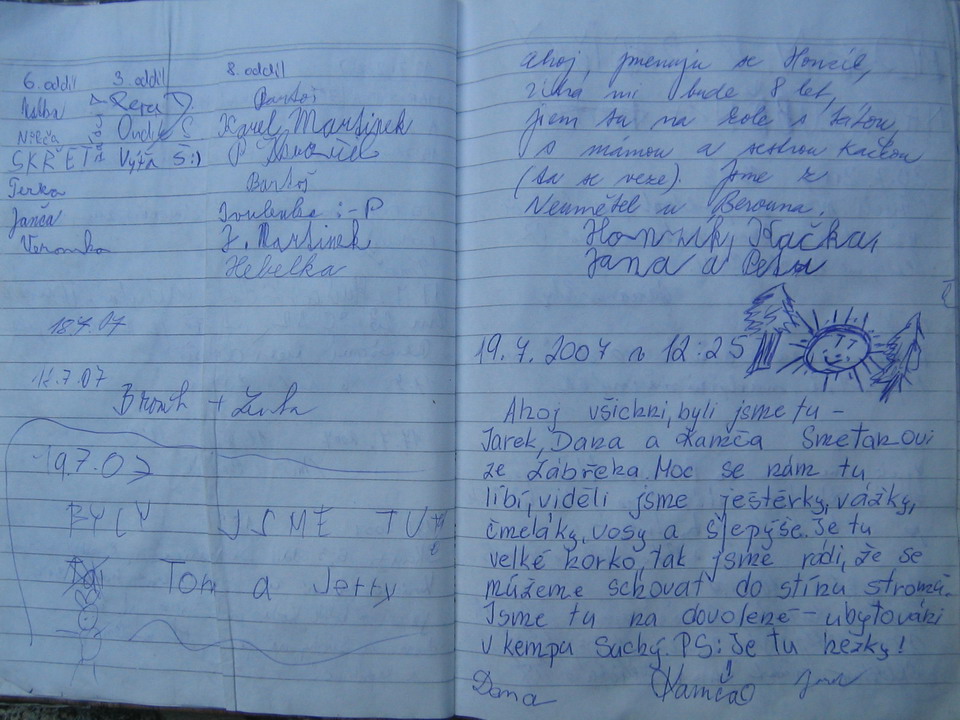 6. oddíl 3. oddíl 8. oddíl
Bartoš
Ondra
Karel Martinek
SKŘET Vyža S:)
P
Terka Bartoš
Janča :-P
Veronika J. Martinek
Hebelka
18.7.07
18.7.07
+
19.7.07
BYLY JSME TU
Tom a Jerry
ahoj, jmenuju se Honzík,
zítra mi bude 8 let,
jsem tu na kole s tátou,
s mámou a sestrou Kačkou
(ta se veze). Jsme z
Neumětel u Berouna.
Honzík, Kačka,
Jana a Petr
19.7.2007 v 12:25
Ahoj všichni, byli jsme tu -
Jarek, Dana a Kamča Smetanovi
ze Zábřeha. Moc se nám tu
líbí, viděli jsme ještěrky, vážky,
čmeláky, vosy a slepýše. Je tu
velké horko, tak jsme rádi, že se
můžeme schovat do stínu stromů.
Jsme tu na dovolené - ubytováni
v kempu Suchý. PS: Je tu hezky!
Dana Kamča